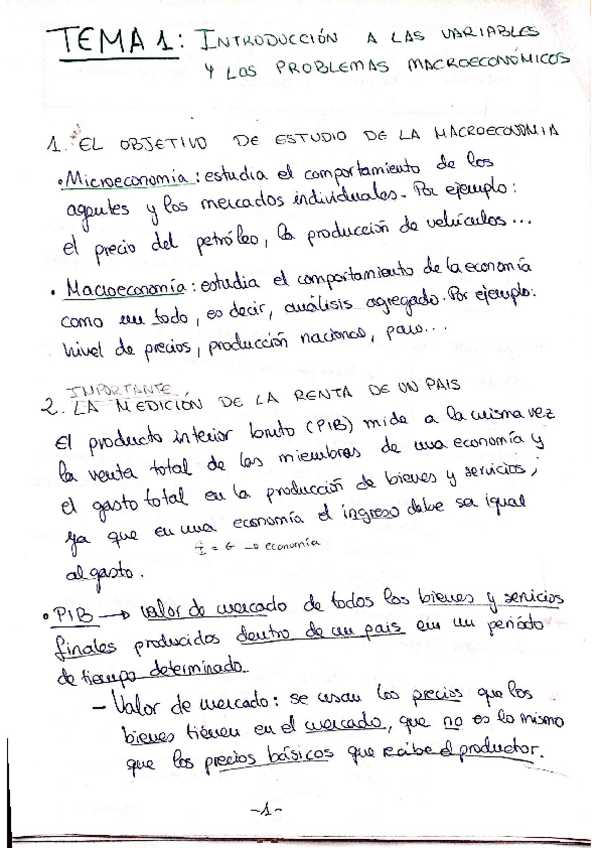 TEMA 1: INTRODUCCIÓN A LAS VARIABLES
Y LOS PROBLEMAS MACROECONÓMICOS
1. EL OBJETIVO DE ESTUDIO DE LA MACROECONOMIA
• Microeconomia: estudia el comportamiento de los
agentes y los mercados individuales. Por ejemplo:
el precio del petróleo, la producción de vehículos...
• Macroeconomía: estudia el comportamiento de la economía
como un todo, es decir, análisis agregado. Por ejemplo:
nivel de precios, producción nacional, paro...
IMPORTANTE
2. LA MEDICIÓN DE LA RENTA DE UN PAIS
El producto interior bruto (PIB) mide a la misma vez
la renta total de los miembros de una economía y
el gasto total en la producción de bienes y servicios,
ya que en una economía el ingreso debe ser igual
I = G → economía
al gasto.
• PIB → valor de mercado de todos los bienes y servicios
finales producidos dentro de un pais en un periodo
de tiempo determinado.
- Valor de mercado: se usan los precios que los
bienes tienen en el mercado, que no es lo mismo
que los precios básicos que recibe el productor.
-1-